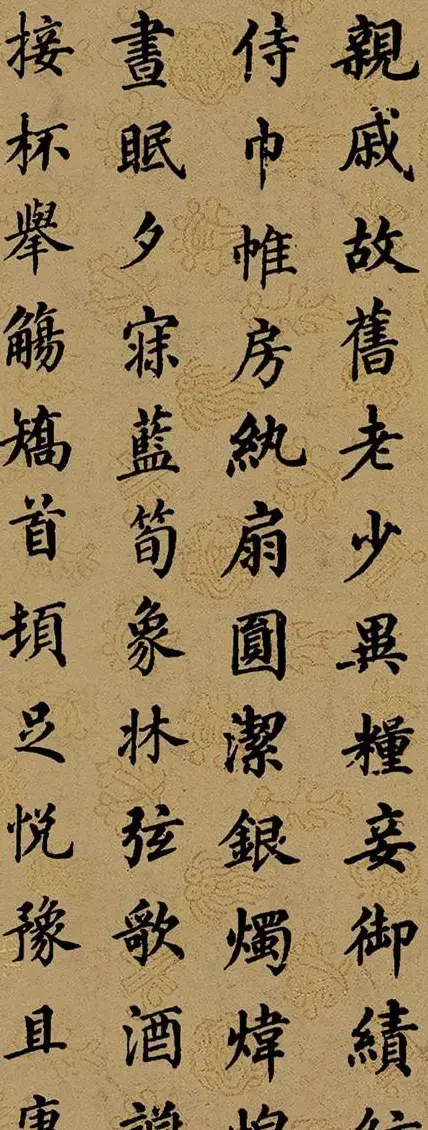 親戚故舊老少異糧妾御績紡
侍巾帷房紈扇圓潔銀燭煒煌
晝眠夕寐藍筍象牀弦歌酒讌
接杯舉觴矯首頓足悅豫且康